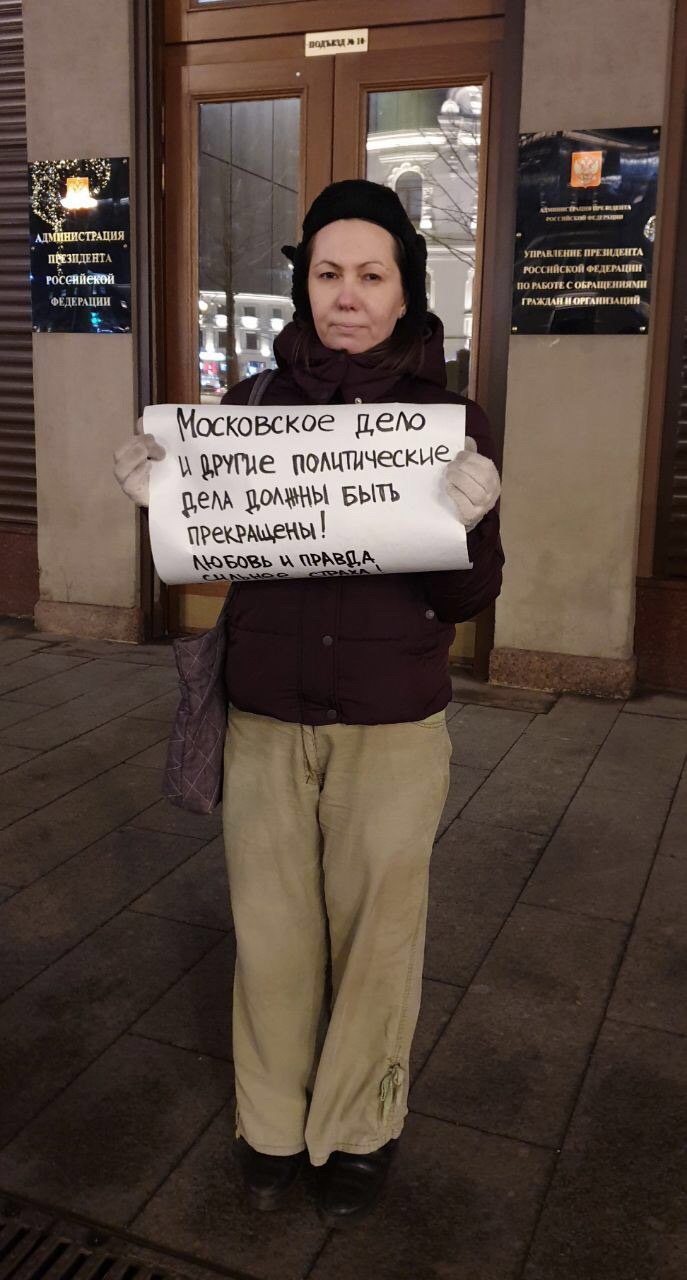 ПОДЪЕЗД № 10
АДМИНИСТРАЦИЯ
ПРЕЗИДЕНТА
РОССИЙСКОЙ
ФЕДЕРАЦИИ
АДМИНИСТРАЦИЯ ПРЕЗИДЕНТА
РОССИЙСКОЙ ФЕДЕРАЦИИ
УПРАВЛЕНИЕ ПРЕЗИДЕНТА
РОССИЙСКОЙ ФЕДЕРАЦИИ
ПО РАБОТЕ С ОБРАЩЕНИЯМИ
ГРАЖДАН И ОРГАНИЗАЦИЙ
МОСКОВСКОЕ ДЕЛО
И ДРУГИЕ ПОЛИТИЧЕСКИЕ
ДЕЛА ДОЛЖНЫ БЫТЬ
ПРЕКРАЩЕНЫ!
ЛЮБОВЬ И ПРАВДА
СИЛЬНЕЕ СТРАХА!